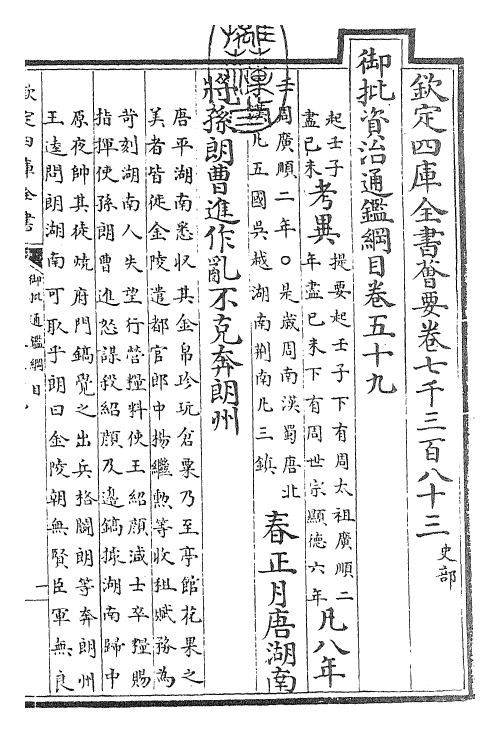 欽定四庫全書薈要卷七千三百八十三 史部
御批資治通鑑綱目卷五十九
起壬子
盡己未
考異
提要起壬子下有周太祖廣順二
年盡己未下有周世宗顯德六年
凡八年
壬子
周廣順二年○是歲周南漢蜀唐北
漢凡五國吳越湖南荆南凡三鎮
春正月唐湖南
將孫朗曹進作亂不克奔朗州
唐平湖南悉收其金帛珍玩倉粟乃至亭館花果之
美者皆徙金陵遣都官郎中揚繼勲等收租賦務為
苛刻湖南人失望行營糧料使王紹顔減士卒糧賜
指揮使孫朗曹進怒謀殺紹顔及邊鎬據湖南歸中
原夜帥其徒燒府門鎬覺之出兵格鬭朗等奔朗州
王逵問朗湖南可取乎朗曰金陵朝無賢臣軍無良
欽定四庫全書
御批通鑑綱目